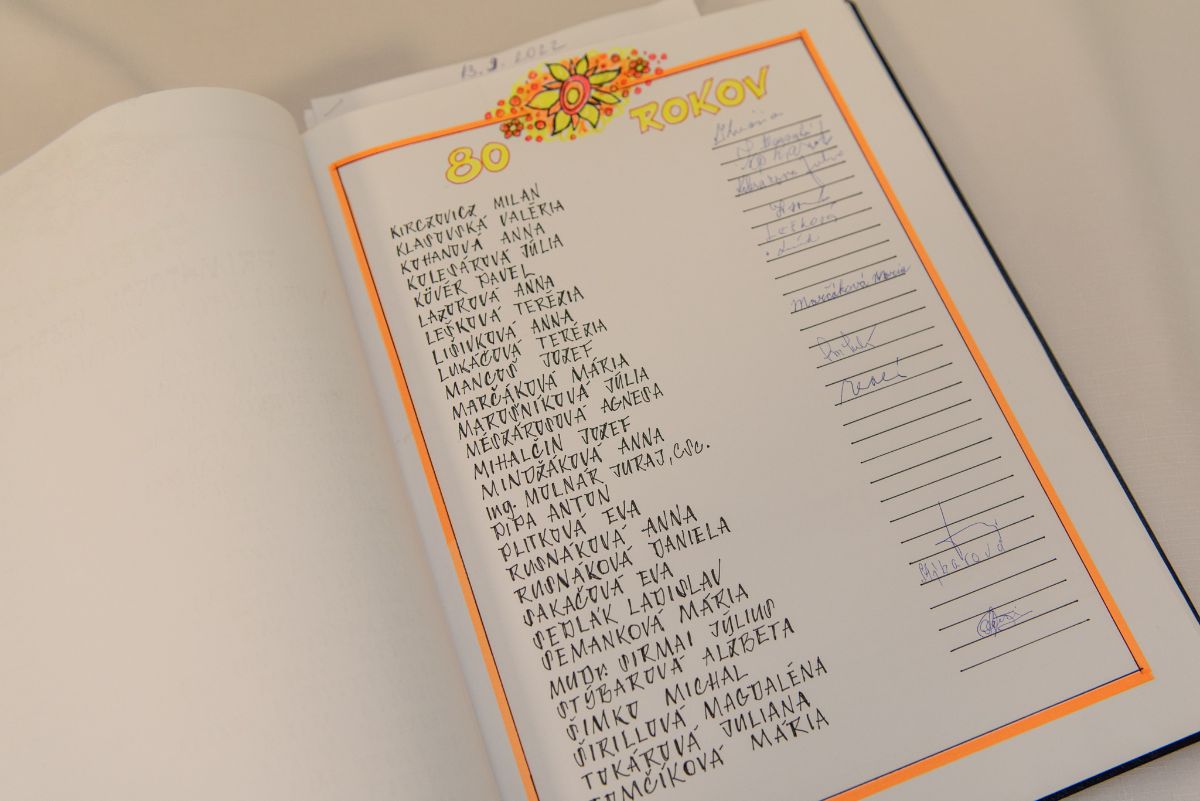 13. 9. 2022
80 ROKOV
KIRCZOVICZ MILAN
KLASOVSKÁ VALÉRIA
KOHANOVÁ ANNA
KOLESÁROVÁ JÚLIA
KÖVÉR PAVEL
LAZOROVÁ ANNA
LEŠKOVÁ TERÉZIA
LIŠIVKOVÁ ANNA
LUKÁČOVÁ TERÉZIA
MANCOŠ JOZEF
MARČÁKOVÁ MÁRIA
MAROSNÍKOVÁ JÚLIA
MÉSZÁROSOVÁ AGNESA
MIHALČIN JOZEF
MINDŽÁKOVÁ ANNA
Ing. MOLNÁR JURAJ, CSc.
PIPA ANTON
PLITKOVÁ EVA
RUSNÁKOVÁ ANNA
RUSNÁKOVÁ DANIELA
SAKAČOVÁ EVA
SEDLÁK LADISLAV
SEMANKOVÁ MÁRIA
MUDr. SIRMAI JÚLIUS
STÝBAROVÁ ALŽBETA
ŠIMKO MICHAL
ŠIRILLOVÁ MAGDALÉNA
TOKÁROVÁ JULIANA
TOMČÍKOVÁ MÁRIA
Lešková
Marčáková Maria
Stýbarová